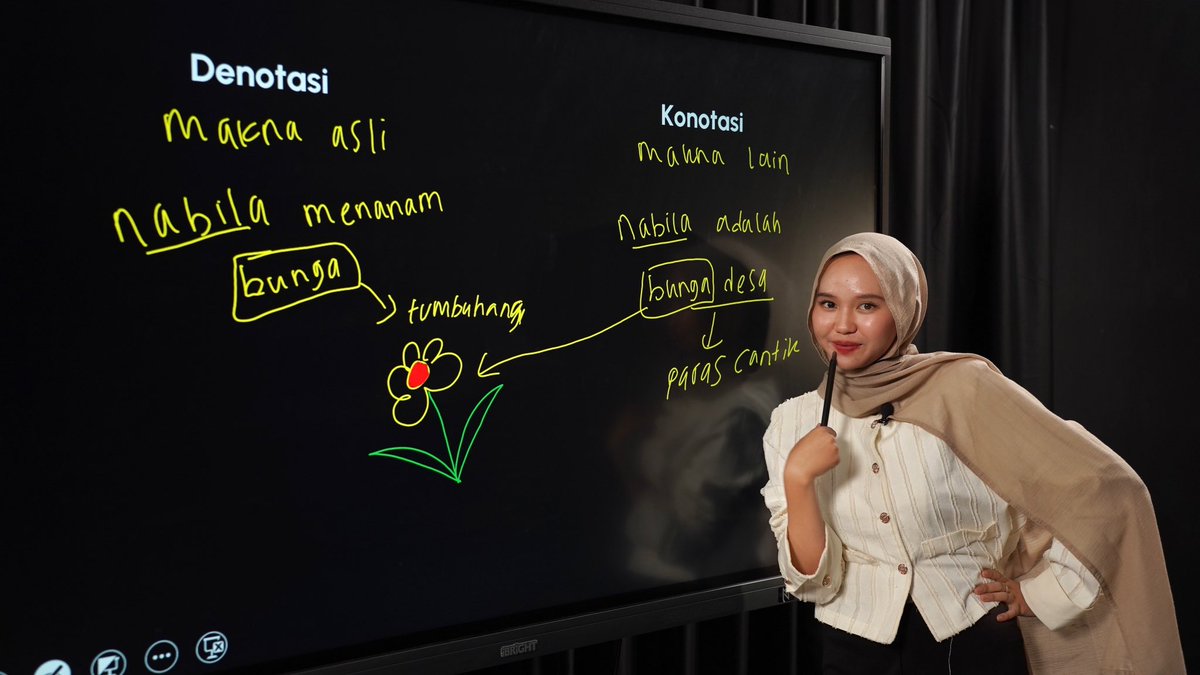 Denotasi
makna asli
nabila menanam
bunga
tumbuhan
Konotasi
makna lain
nabila adalah
bunga desa
paras cantik
BRIGHT